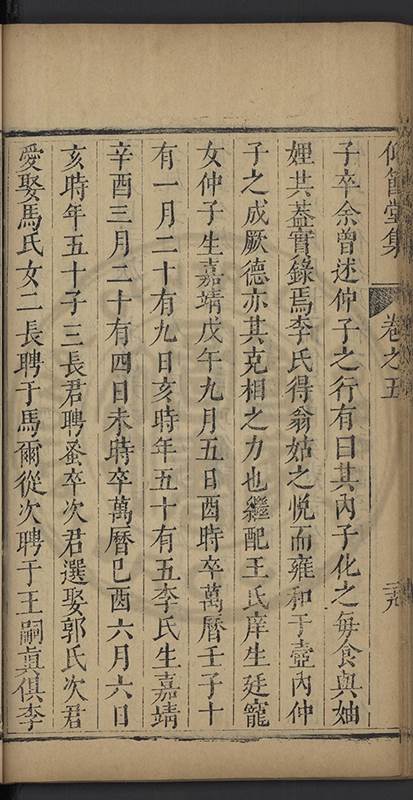 仰節堂集 卷之五
子卒余曾述仲子之行有曰其內子化之每食與妯
娌共蓋實錄焉李氏得翁姑之悅而雍和于壼內仲
子之成厥德亦其克相之力也繼配王氏庠生廷寵
女仲子生嘉靖戊午九月五日酉時卒萬曆壬子十
有一月二十有九日亥時年五十有五李氏生嘉靖
辛酉三月二十有四日未時卒萬曆己酉六月六日
亥時年五十子三長君聘蚤卒次君選娶郭氏次君
愛娶馬氏女二長聘于馬爾從次聘于王嗣真俱李